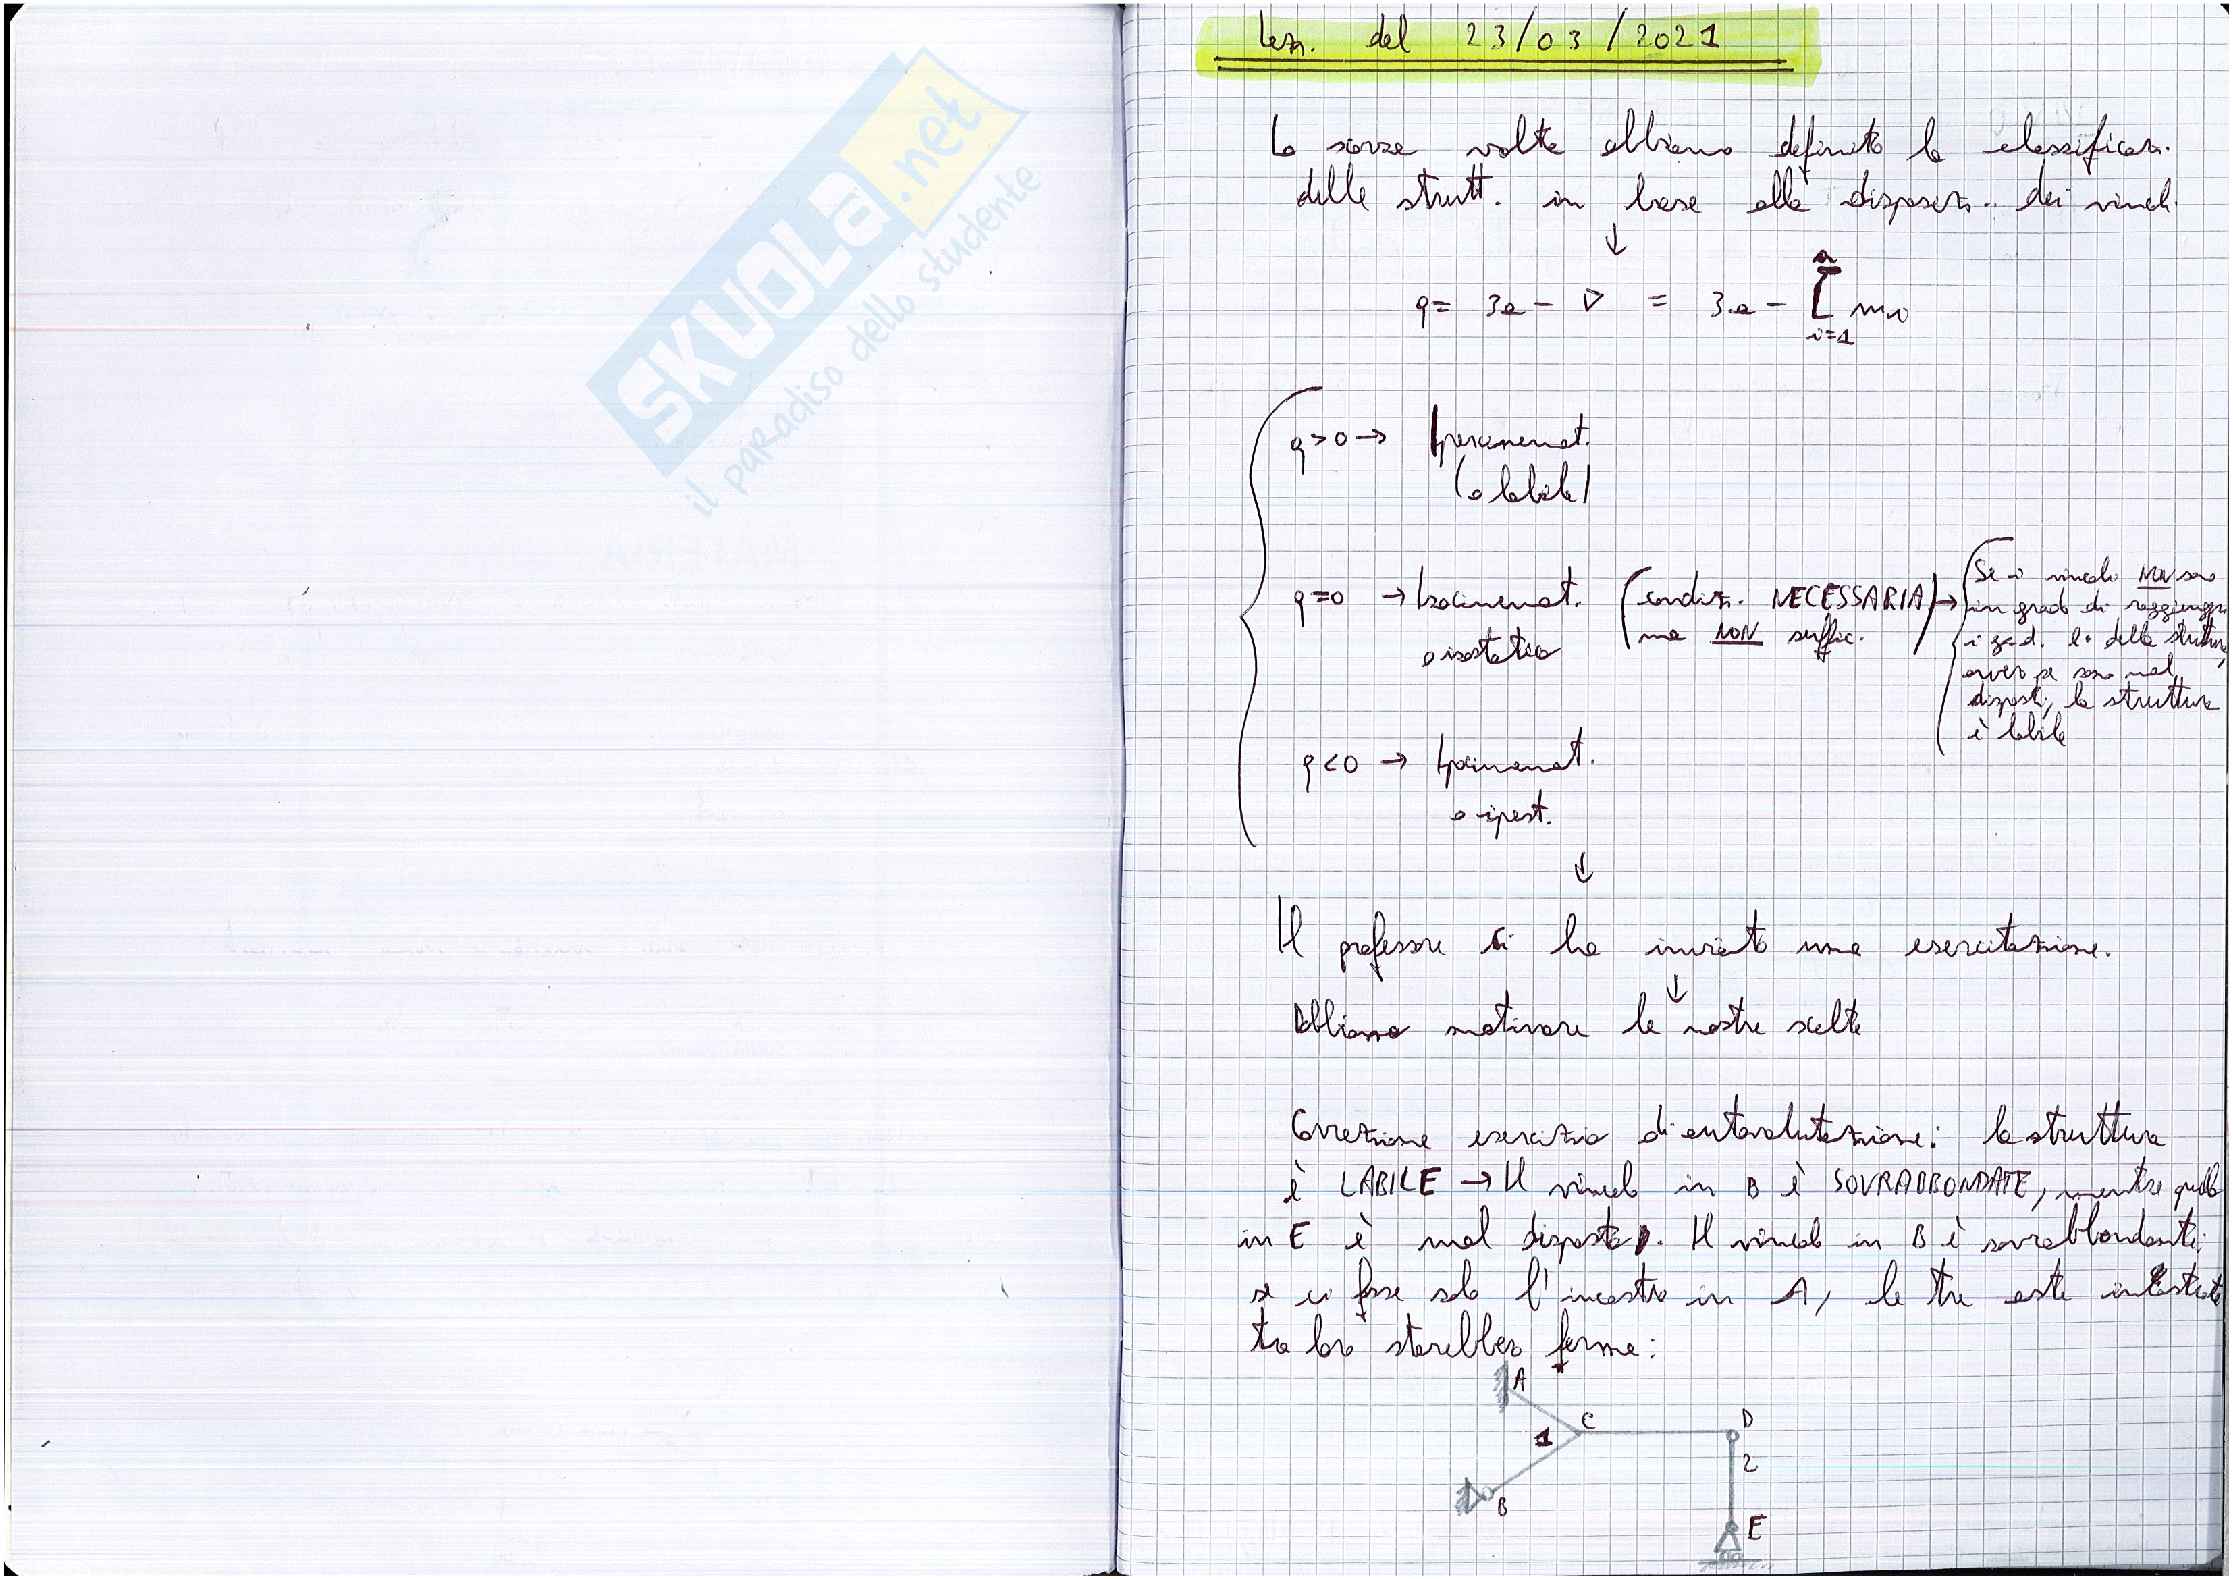 SKUOLA.net
il paradiso dello studente
Lez. del 23/03/2021
La scorsa volta abbiamo definito la classificaz.
delle strutt. in base alla disposiz. dei vincoli
↓
q = 3a - V = 3a - Σ m
i=1
q>0 → Ipercinemat.
(o labile)
q=0 → Isocinemat. (condiz. NECESSARIA) →
o isostatica ma NON suffic.
Se i vincoli NON sono
in grado di raggiungere
i g.d.l. della struttura,
ovvero se sono mal
disposti, la struttura
è labile
q<0 → Ipocinemat.
o iperst.
↓
Il professore ci ha inviato una esercitazione.
↓
Dobbiamo motivare le nostre scelte
Correzione esercizio di autovalutazione: la struttura
è LABILE → Il vincolo in B è SOVRABBONDATE, mentre quello
in E è mal disposto. Il vincolo in B è sovrabbondante:
se ci fosse solo l'incastro in A, le tre aste incastrate
tra loro starebbero ferme:
A
C
1
D
2
B
E